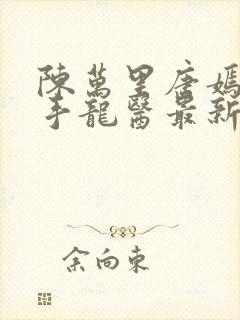 陳萬里唐嫣
手龍醫最新
余向東